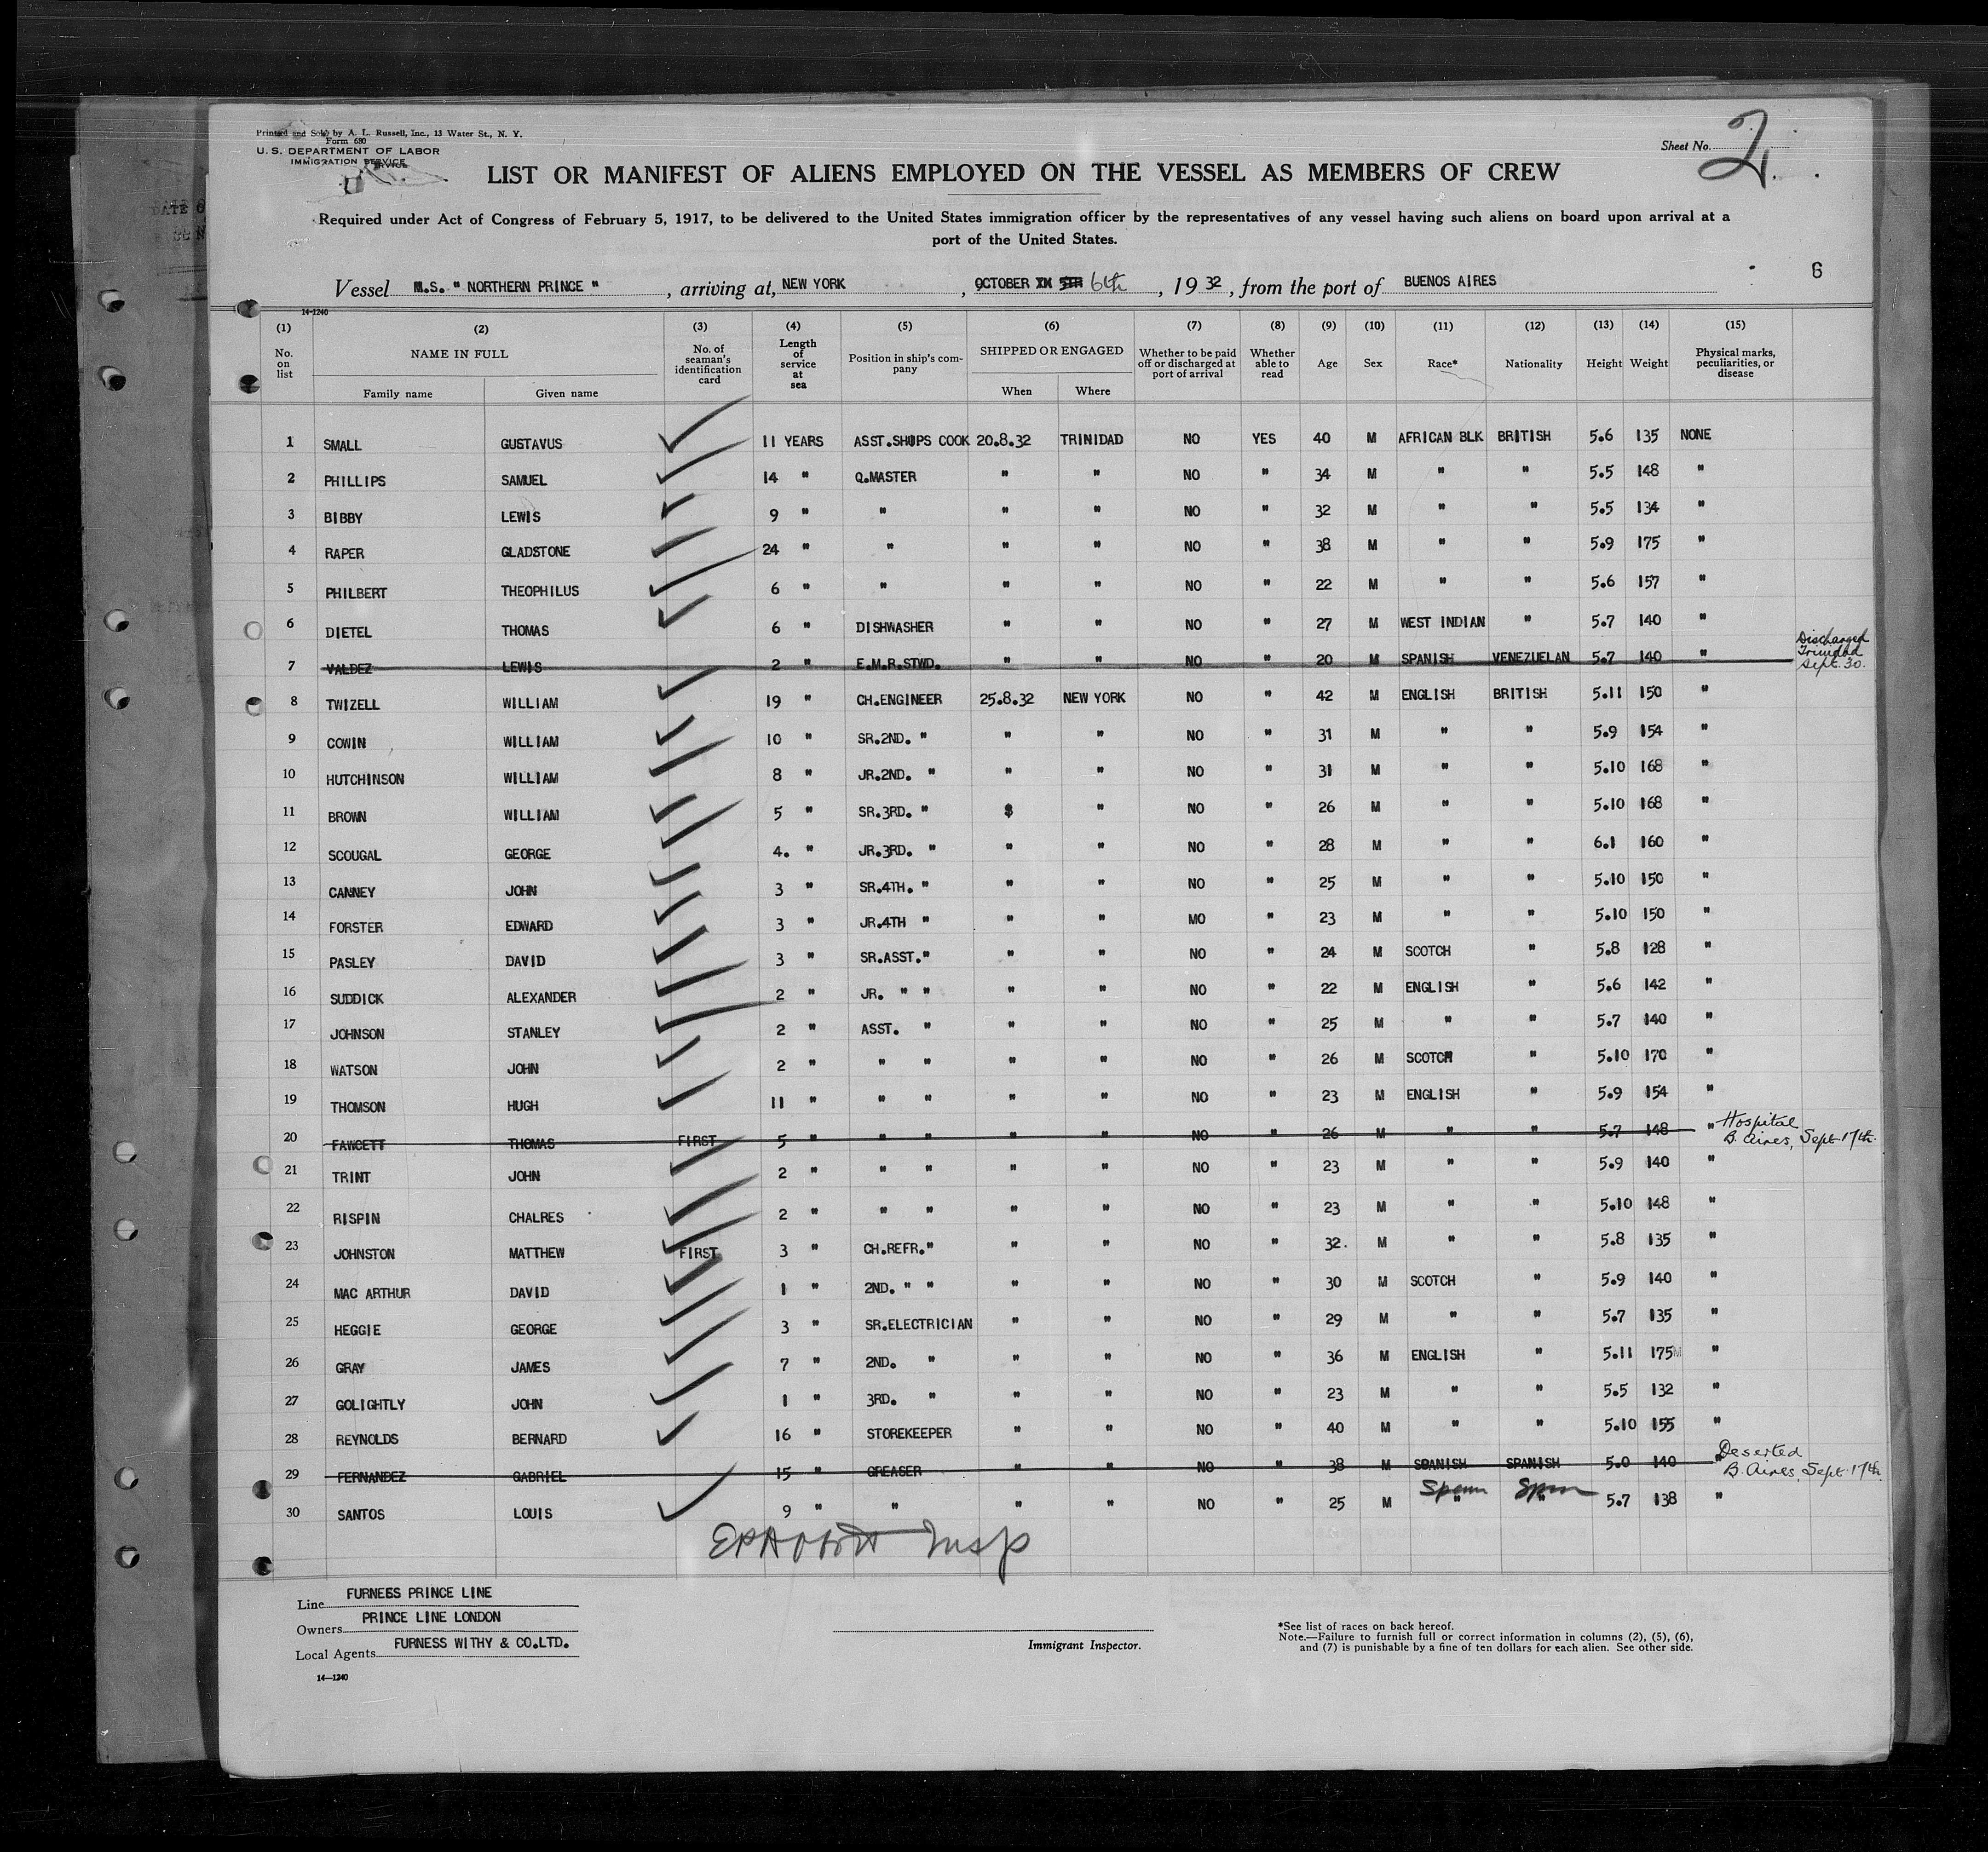 Printed and Sold by A. L. Russell, Inc., 13 Water St., N. Y.
Form 680
U. S. DEPARTMENT OF LABOR
IMMIGRATION SERVICE
Sheet No. 2.
LIST OR MANIFEST OF ALIENS EMPLOYED ON THE VESSEL AS MEMBERS OF CREW
Required under Act of Congress of February 5, 1917, to be delivered to the United States immigration officer by the representatives of any vessel having such aliens on board upon arrival at a
port of the United States.
6
Vessel M.S. " NORTHERN PRINCE ", arriving at, NEW YORK, OCTOBER 5TH 6th, 19 32, from the port of BUENOS AIRES
14-1240
(1) (2) (3) (4) (5) (6) (7) (8) (9) (10) (11) (12) (13) (14) (15)
No. on list NAME IN FULL Family name Given name No. of seaman's identification card Length of service at sea Position in ship's company SHIPPED OR ENGAGED When Where Whether to be paid off or discharged at port of arrival Whether able to read Age Sex Race* Nationality Height Weight Physical marks, peculiarities, or disease
1 SMALL GUSTAVUS 11 YEARS ASST.SHIPS COOK 20.8.32 TRINIDAD NO YES 40 M AFRICAN BLK BRITISH 5.6 135 NONE
2 PHILLIPS SAMUEL 14 " Q.MASTER " " NO " 34 M " " 5.5 148 "
3 BIBBY LEWIS 9 " " " " NO " 32 M " " 5.5 134 "
4 RAPER GLADSTONE 24 " " " " NO " 38 M " " 5.9 175 "
5 PHILBERT THEOPHILUS 6 " " " " NO " 22 M " " 5.6 157 "
6 DIETEL THOMAS 6 " DISHWASHER " " NO " 27 M WEST INDIAN " 5.7 140 "
7 VALDEZ LEWIS 2 " E.M.R.STWD. " " NO " 20 M SPANISH VENEZUELAN 5.7 140 " Discharged Trinidad Sept. 30.
8 TWIZELL WILLIAM 19 " CH.ENGINEER 25.8.32 NEW YORK NO " 42 M ENGLISH BRITISH 5.11 150 "
9 COWIN WILLIAM 10 " SR.2ND. " " " NO " 31 M " " 5.9 154 "
10 HUTCHINSON WILLIAM 8 " JR.2ND. " " " NO " 31 M " " 5.10 168 "
11 BROWN WILLIAM 5 " SR.3RD. " $ " NO " 26 M " " 5.10 168 "
12 SCOUGAL GEORGE 4. " JR.3RD. " " " NO " 28 M " " 6.1 160 "
13 CANNEY JOHN 3 " SR.4TH. " " " NO " 25 M " " 5.10 150 "
14 FORSTER EDWARD 3 " JR.4TH " " " MO " 23 M " " 5.10 150 "
15 PASLEY DAVID 3 " SR.ASST." " " NO " 24 M SCOTCH " 5.8 128 "
16 SUDDICK ALEXANDER 2 " JR. " " " " NO " 22 M ENGLISH " 5.6 142 "
17 JOHNSON STANLEY 2 " ASST. " " " NO " 25 M " " 5.7 140 "
18 WATSON JOHN 2 " " " " " NO " 26 M SCOTCH " 5.10 170 "
19 THOMSON HUGH 11 " " " " " NO " 23 M ENGLISH " 5.9 154 "
20 FAWCETT THOMAS FIRST 5 " " " " " NO " 26 M " " 5.7 148 " Hospital B. Aires, Sept. 17th.
21 TRINT JOHN 2 " " " " " NO " 23 M " " 5.9 140 "
22 RISPIN CHALRES 2 " " " " " NO " 23 M " " 5.10 148 "
23 JOHNSTON MATTHEW FIRST 3 " CH.REFR." " " NO " 32. M " " 5.8 135 "
24 MAC ARTHUR DAVID 1 " 2ND. " " " " NO " 30 M SCOTCH " 5.9 140 "
25 HEGGIE GEORGE 3 " SR.ELECTRICIAN " " NO " 29 M " " 5.7 135 "
26 GRAY JAMES 7 " 2ND. " " " NO " 36 M ENGLISH " 5.11 175 "
27 GOLIGHTLY JOHN 1 " 3RD. " " " NO " 23 M " " 5.5 132 "
28 REYNOLDS BERNARD 16 " STOREKEEPER " " NO " 40 M " " 5.10 155 "
29 FERNANDEZ GABRIEL 15 " GREASER " " NO " 38 M SPANISH SPANISH 5.0 140 " Deserted B. Aires, Sept. 17th.
30 SANTOS LOUIS 9 " " " " NO " 25 M " Span " 5.7 138 "
Insp
Line FURNESS PRINCE LINE
Owners PRINCE LINE LONDON
Local Agents FURNESS WITHY & CO.LTD.
14—1240
Immigrant Inspector.
*See list of races on back hereof.
Note.—Failure to furnish full or correct information in columns (2), (5), (6),
and (7) is punishable by a fine of ten dollars for each alien. See other side.